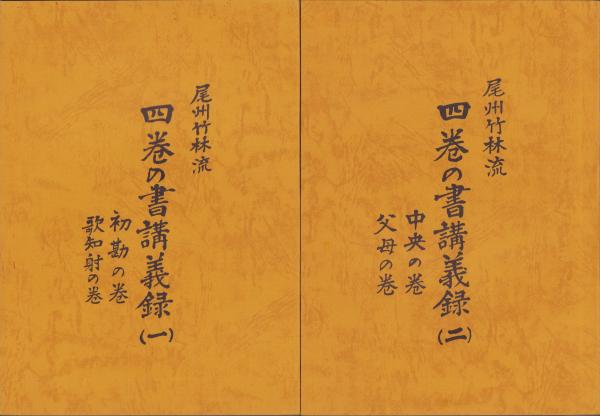 尾州竹林流
四巻の書講義録(一)
初勘の巻
歌知射の巻
尾州竹林流
四巻の書講義録(二)
中央の巻
父母の巻